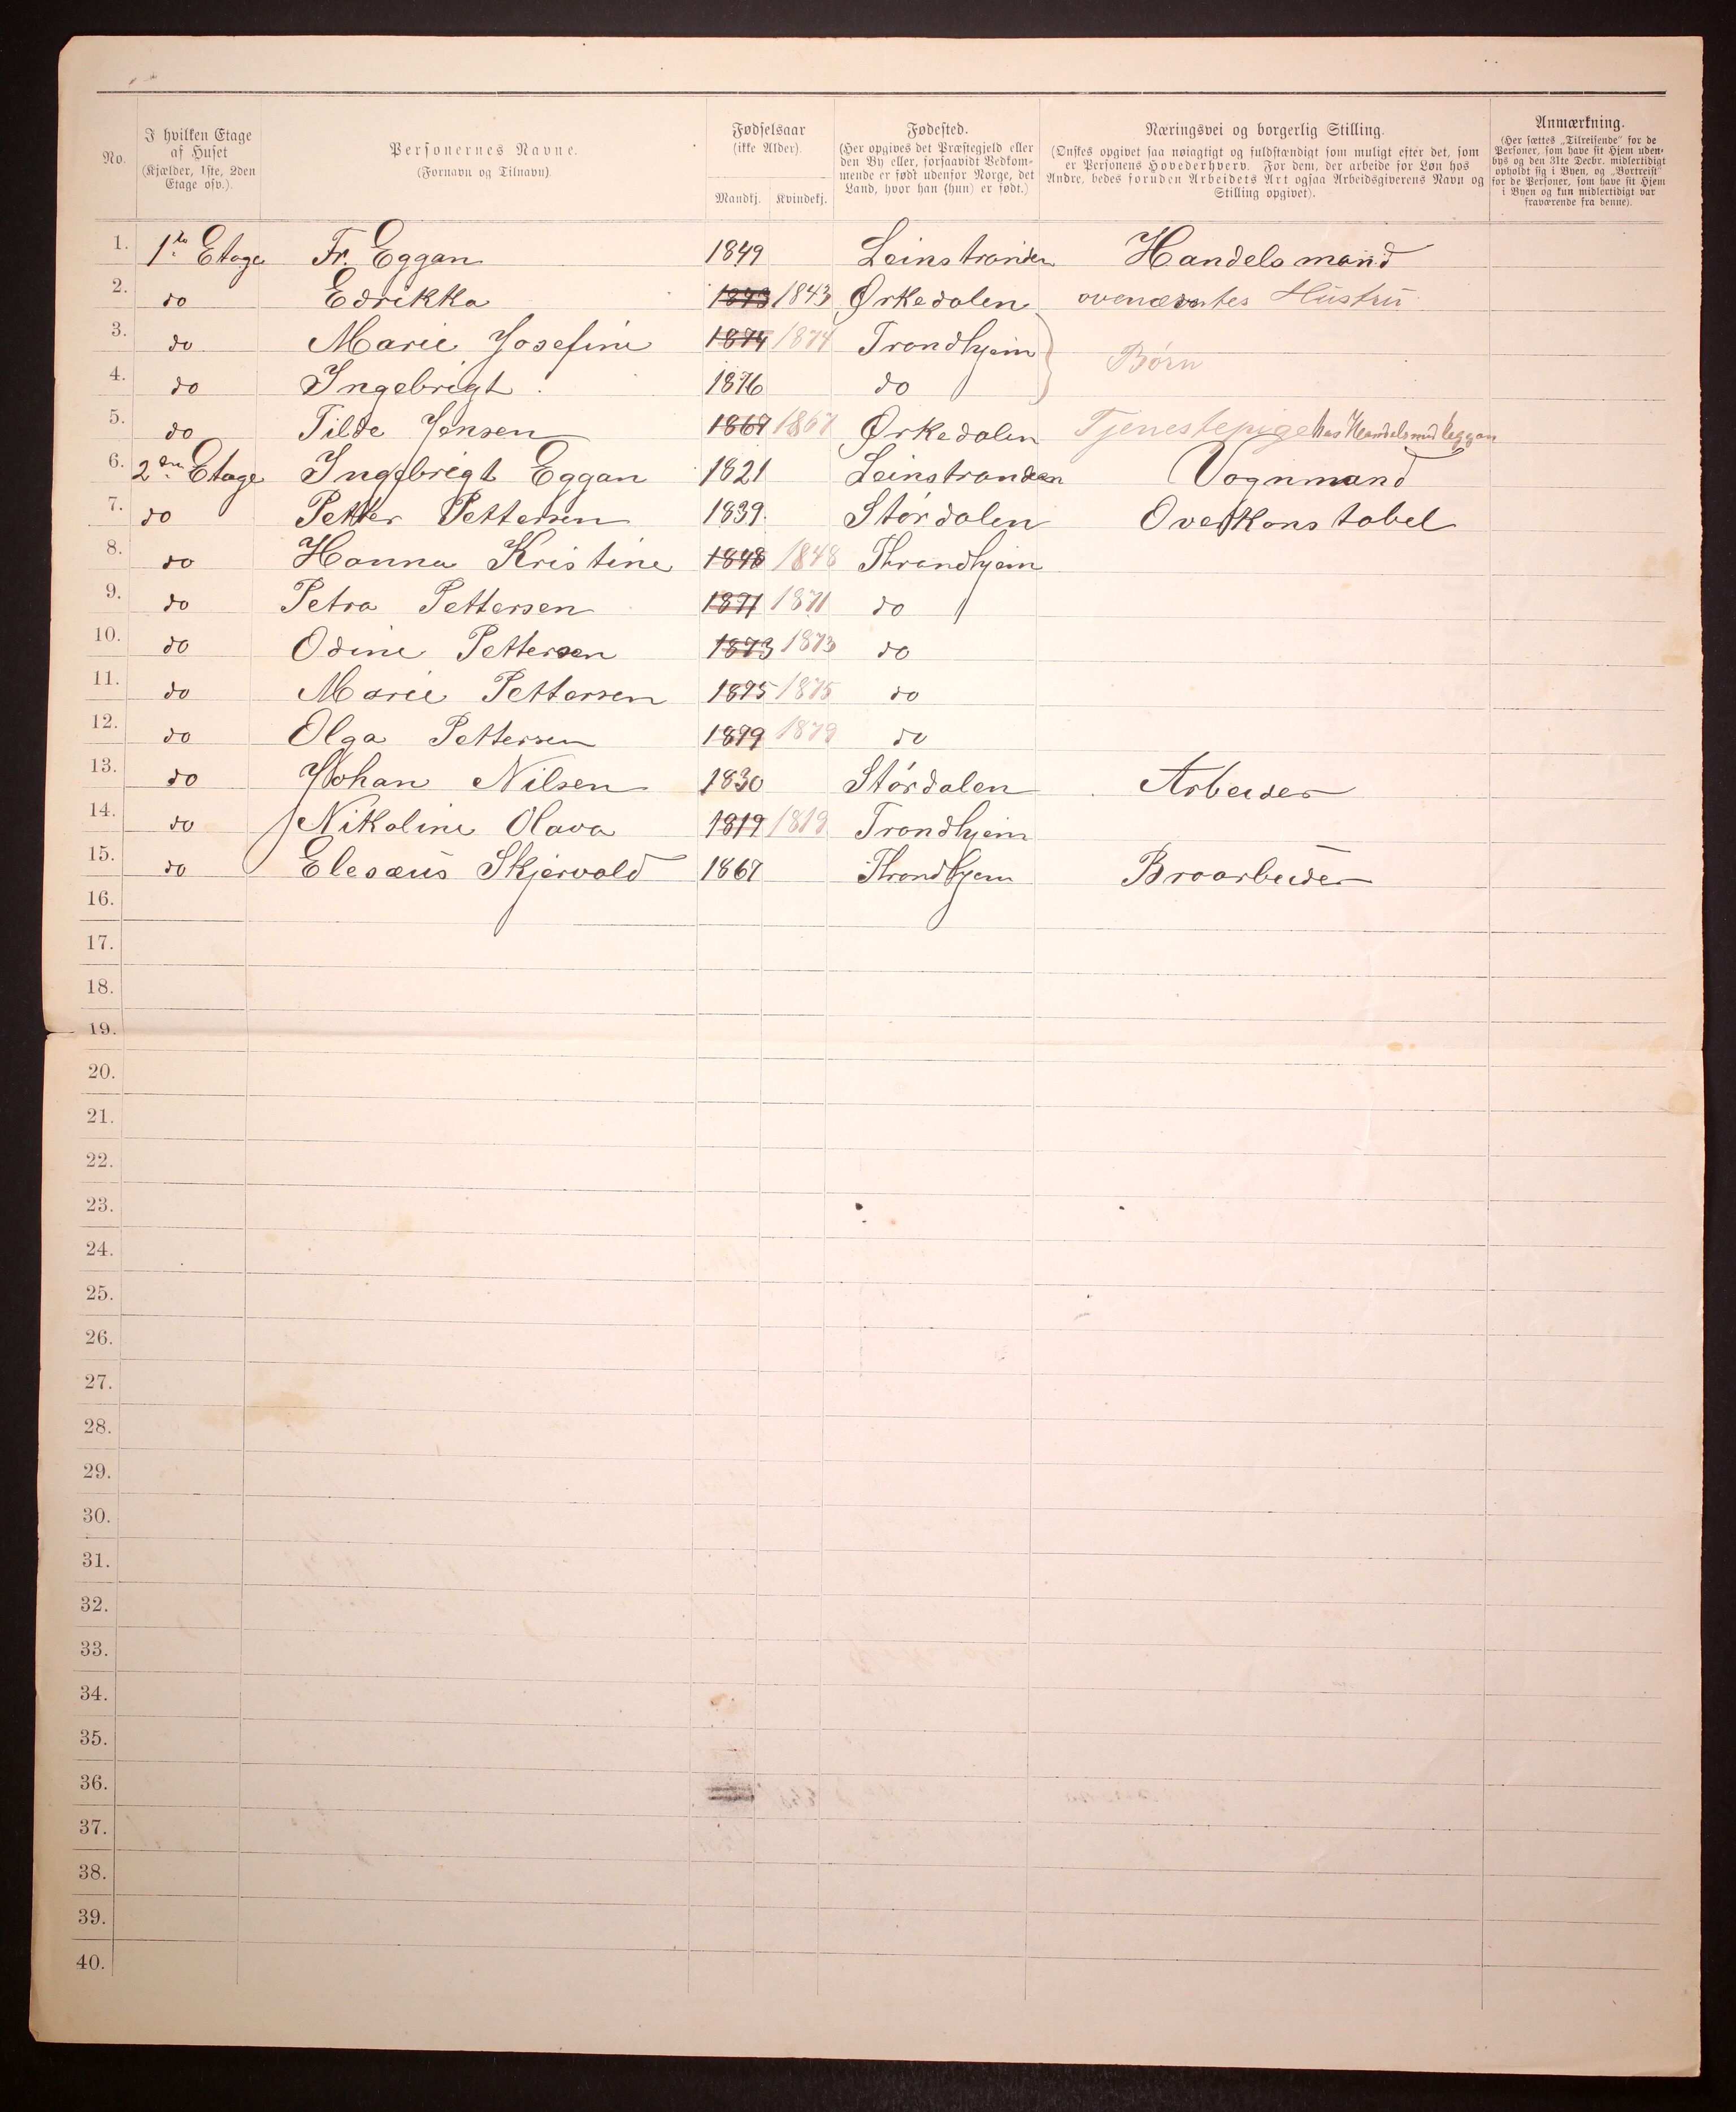 No.
I hvilken Etage
af Huset
(Kjælder, 1ste, 2den
Etage osv.).
Personernes Navne.
(Fornavn og Tilnavn).
Fødselsaar
(ikke Alder).
Mandkj. Kvindekj.
Fødested.
(Her opgives det Præstegjeld eller
den By eller, forsaavidt Vedkom-
mende er født udenfor Norge, det
Land, hvor han (hun) er født.)
Næringsvei og borgerlig Stilling.
(Ønskes opgivet saa nøiagtigt og fuldstændigt som muligt efter det, som
er Personens Hovederhverv. For dem, der arbeide for Løn hos
Andre, bedes foruden Arbeidets Art ogsaa Arbeidsgiverens Navn og
Stilling opgivet).
Anmærkning.
(Her sættes „Tilreisende" for de
Personer, som have sit Hjem uden-
bys og den 31te Decbr. midlertidigt
opholdt sig i Byen, og „Bortreist"
for de Personer, som have sit Hjem
i Byen og kun midlertidigt var
fraværende fra denne).
1. 1te Etage Fr. Eggan 1849 Leinstranden Handelsmand
2. do Edrikka 1843 1843 Ørkedalen ovenævntes Hustru
3. do Marie Josefine 1874 1874 Trondhjem
Børn
4. do Ingebrigt 1876 do
5. do Tilde Jensen 1867 1867 Ørkedalen Tjenestepige hos Handelsmd Eggan
6. 2den Etage Ingebrigt Eggan 1821 Leinstranden Vognmand
7. do Petter Pettersen 1839 Størdalen Overkonstabel
8. do Hanna Kristine 1848 1848 Throndhjem
9. do Petra Pettersen 1871 1871 do
10. do Odine Pettersen 1873 1873 do
11. do Marie Pettersen 1875 1875 do
12. do Olga Pettersen 1879 1879 do
13. do Johan Nilsen 1830 Størdalen Arbeider
14. do Nikoline Olava 1819 1819 Trondhjem
15. do Elesæus Skjervold 1867 Throndhjem Broarbeider
16.
17.
18.
19.
20.
21.
22.
23.
24.
25.
26.
27.
28.
29.
30.
31.
32.
33.
34.
35.
36.
37.
38.
39.
40.